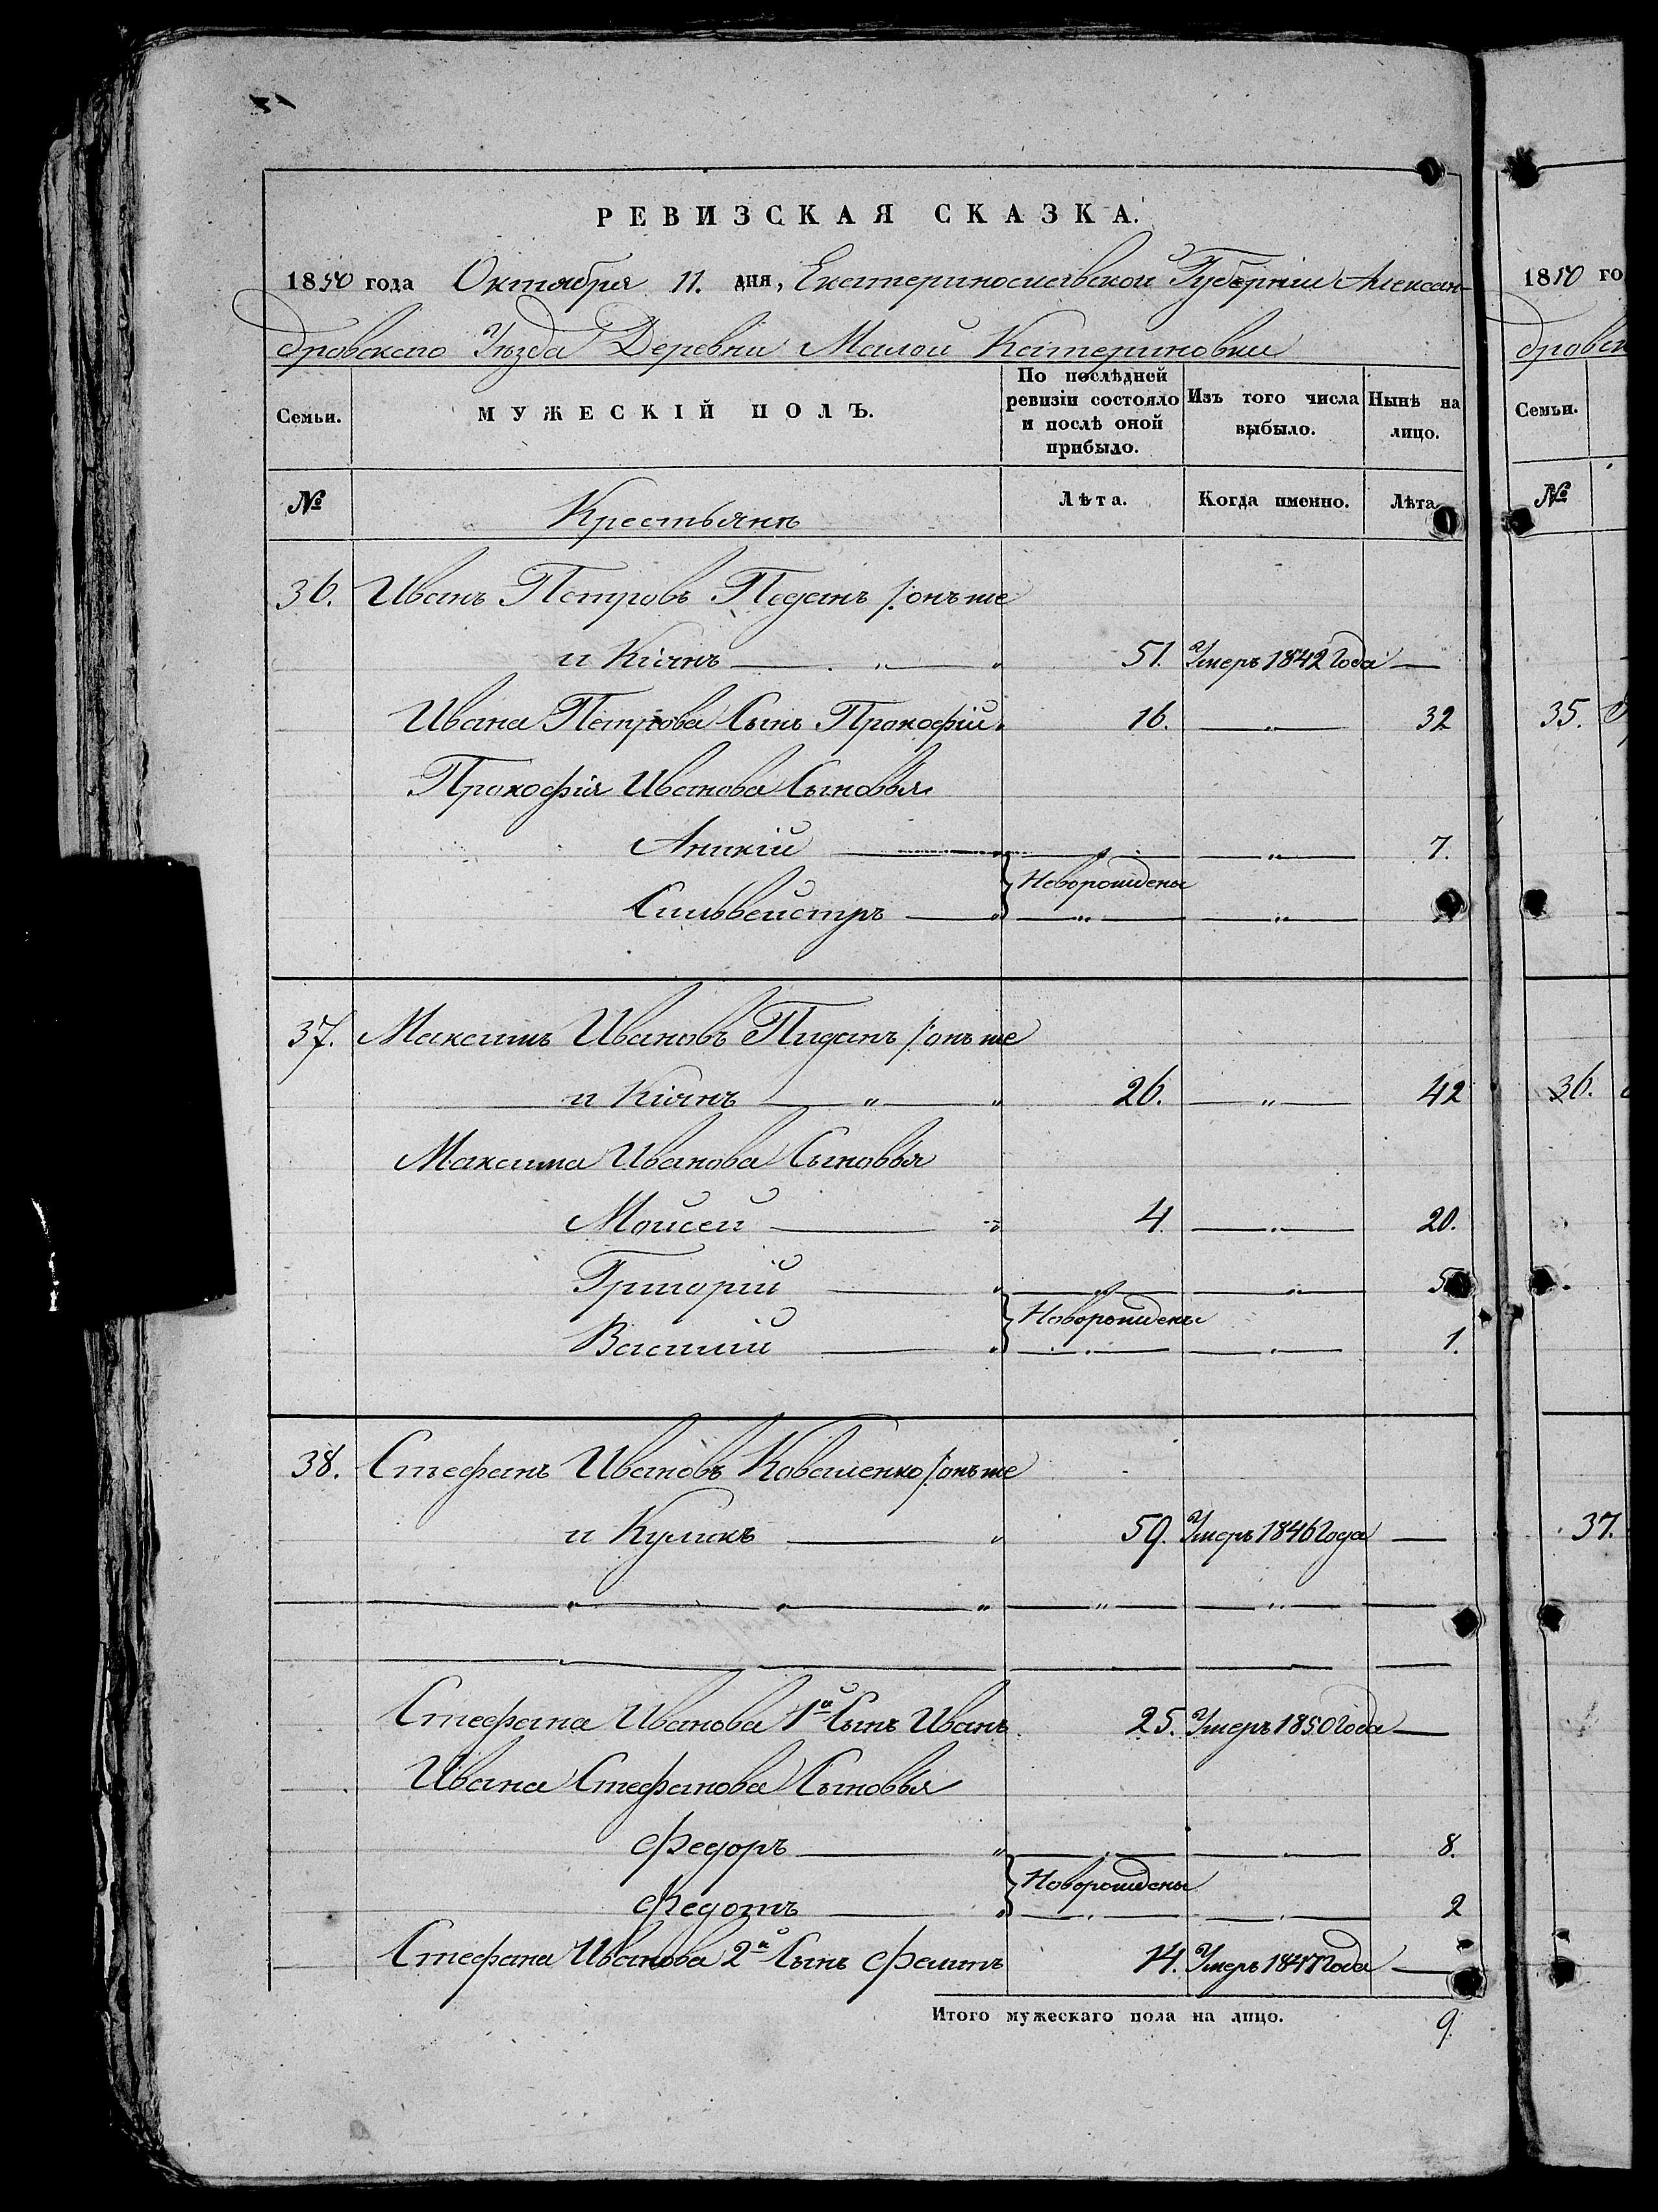 РЕВИЗСКАЯ СКАЗКА.
1850 года Октября 11. дня, Екатеринославской Губерніи Алексан-
дровскаго Уѣзда Деревни Малой Катериновки
Семьи. МУЖЕСКІЙ ПОЛЪ. По послѣдней ревизіи состояло и послѣ оной прибыло. Изъ того числа выбыло. Нынѣ на лицо.
№ Крестьянъ Лѣта. Когда именно. Лѣта
36. Иванъ Петровъ Педанъ /:онъ же
и Кіянъ 51. Умеръ 1842 года
Ивана Петрова Сынъ Прокофій 16. 32
Прокофія Иванова Сыновья
Аникій 7.
Новорождены
Сильвейстръ
37. Максимъ Ивановъ Пиданъ /:онъ же
и Кіянъ 26. 42
Максима Иванова Сыновья
Мойсей 4 20.
Григорій 5
Новорождены
Василій 1.
38. Стефанъ Ивановъ Коваленко /:онъ же
и Куликъ 59. Умеръ 1846 года
Стефана Иванова 1й Сынъ Иванъ 25. Умеръ 1850 года
Ивана Стефанова Сыновья
Федоръ 8.
Новорождены
Федотъ 2
Стефана Иванова 2й Сынъ Филипъ 14. Умеръ 1847 года
Итого мужескаго пола на лицо. 9
1850 го
дровск
Семьи.
№
35.
36.
37.